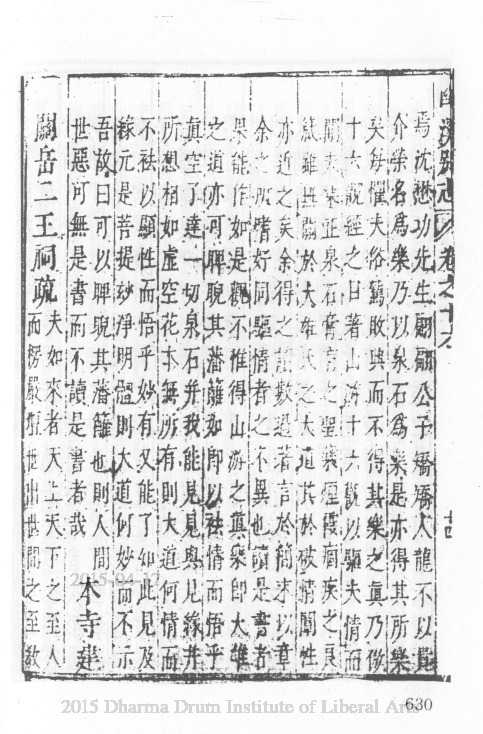 幽溪別志 卷之十六
焉沈懋功先生翩翩公子矯矯人龍不以貴
介榮名為樂乃以泉石為樂是亦得其所樂
矣每懼夫俗駕敗興而不得其樂之真乃倣
十六觀經之目著山游十六觀以驅夫情而
泉石膏肓之聖藥煙霞痼疾之良
雖與關於大雄氏之大道其於破情
亦近之矣余得之讀數過著言於簡末以章
余之所嗜好同驅情者之不異也讀是書者
果能作如是觀不惟得山游之真樂即大雄
之道亦可睥睨其藩籬如即以祛情而悟乎
真空了達一切泉石并我能見見與見緣并
所想相如虛空花本無所有則大道何情而
不祛以顯性而悟乎妙有又能了如此見及
緣元是菩提妙淨明體則大道何妙而不示
吾故曰可以睥睨其藩籬也則人間
世惡可無是書而不讀是書者哉
本寺建
關岳二王祠疏
夫如來者天上天下之至人
而楞嚴 世出世間之至教
2015-04-12
2015 Dharma Drum Institute of Liberal Arts
630